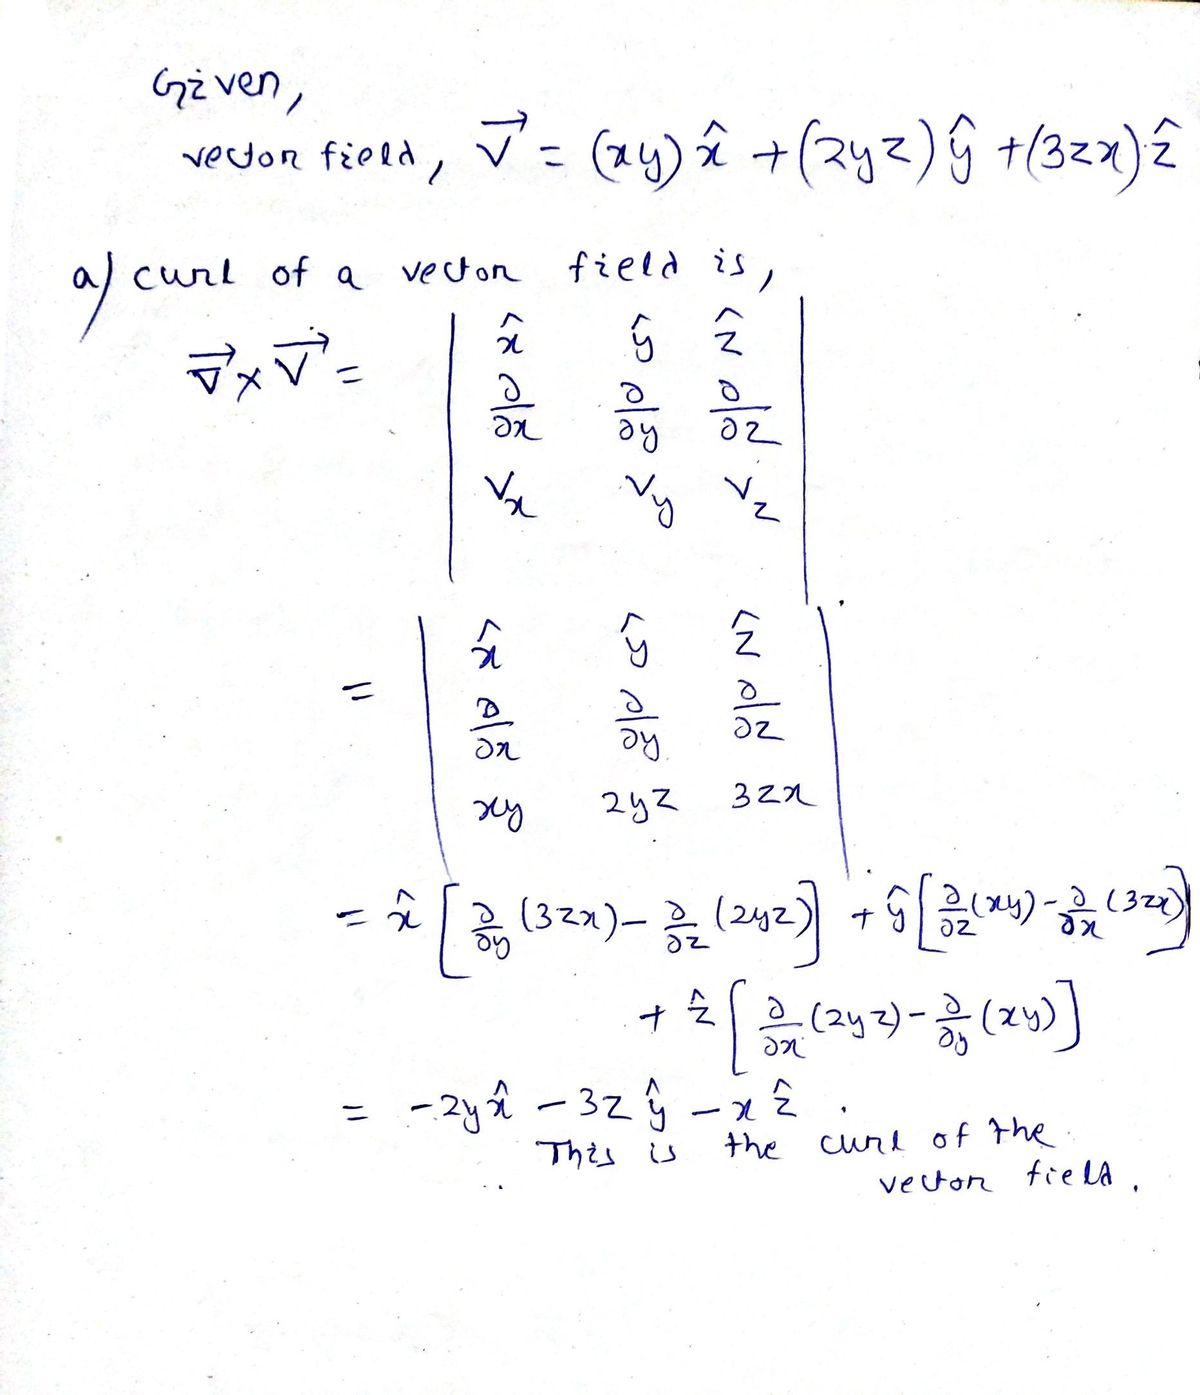 Given,
vector field, V⃗ = (xy) x̂ + (2yz) ŷ + (3zx) ẑ
a/ curl of a vector field is,
∇⃗ × V⃗ = | x̂ ŷ ẑ |
| ∂/∂x ∂/∂y ∂/∂z |
| Vx Vy Vz |
= | x̂ ŷ ẑ |
| ∂/∂x ∂/∂y ∂/∂z |
| xy 2yz 3zx |
= x̂ [ ∂/∂y (3zx) − ∂/∂z (2yz) ] + ŷ [ ∂/∂z (xy) − ∂/∂x (3zx) ]
+ ẑ [ ∂/∂x (2yz) − ∂/∂y (xy) ]
= −2y x̂ − 3z ŷ − x ẑ
This is the curl of the
vector field.